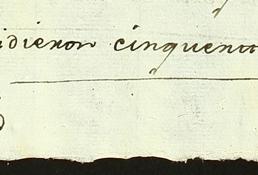 idieron cinquenta